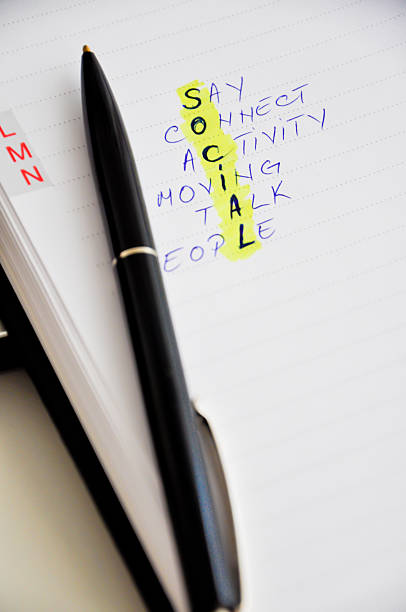 SAY
CONNECT
ACTIVITY
MOViNG
TALK
EOPLE
L
M
N